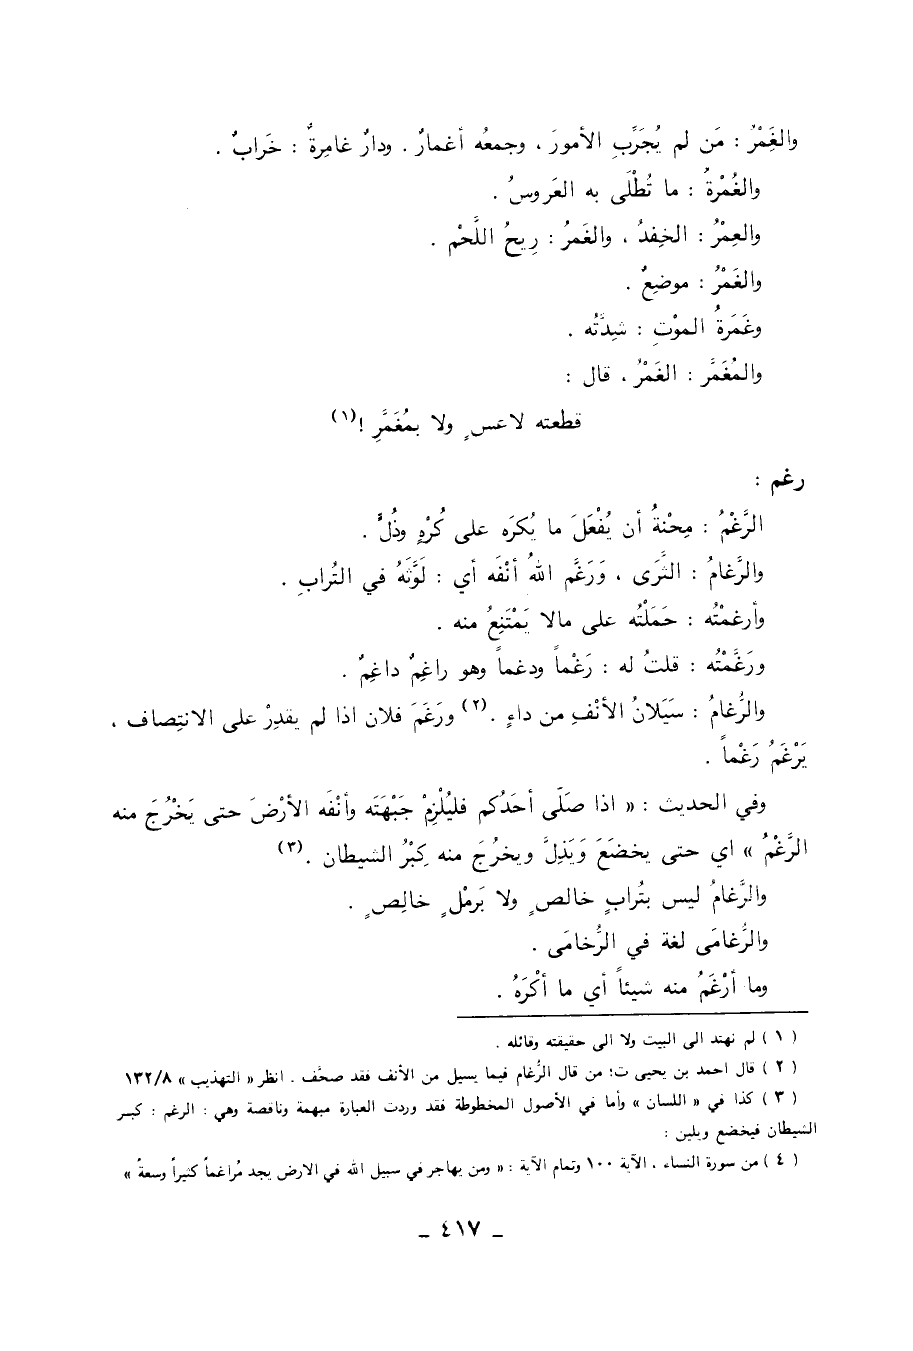 والغِمْرُ : مَن لم يُجَرِّبِ الأمورَ ، وجمعُه أغمارٌ . ودارٌ غامِرةٌ : خَرابٌ .
والغُمْرةُ : ما تُطْلَى به العَروسُ .
والغِمْرُ : الحِقدُ ، والغَمرُ : رِيحُ اللَّحْم .
والغَمْرُ : موضِعٌ .
وغَمَرةُ الموْتِ : شِدَّتُه .
والمُغَمَّر : الغَمْرُ ، قال :
قطعته لاعسٍ ولا بمُغَمَّرِ !(١)
رغم :
الرَّغْمُ : مِحْنةُ أن يُفْعَلَ ما يُكرَه على كُرْهٍ وذُلٍّ .
والرَّغامُ : الثَّرَى ، وَرَغَّم اللهُ أنْفَه أي : لَوَّثَهُ في التُرابِ .
وأرغمْتُه : حَمَلْتُه على مالا يَمْتَنِعُ منه .
ورَغَّمْتُه : قلتُ له : رَغْماً ودغماً وهو راغِمٌ داغِمٌ .
والرُّغامُ : سَيَلانُ الأنْفِ من داءٍ .(٢) ورَغَمَ فلان اذا لم يقدِرْ على الانتِصاف ،
يَرْغَمُ رَغْماً .
وفي الحديث : « اذا صَلَى أحَدُكم فليُلْزِمْ جَبْهَتَه وأنْفَه الأرْضَ حتى يَخْرُجَ منه
الرَّغْمُ » اي حتى يخضَعَ وَيَذِلَّ ويخرُجَ منه كِبْرُ الشيطان .(٣)
والرَّغامُ ليس بتُرابٍ خالصٍ ولا بَرمْلٍ خالِصٍ .
والرُّغامَى لغة في الرُّخامَى .
وما أرْغَمُ منه شيئاً أي ما أكْرَهُ .
( ١ ) لم نهتد الى البيت ولا الى حقيقته وقائله .
( ٢ ) قال احمد بن يحيى ت؛ من قال الرُّغام فيما يسيل من الأنف فقد صحَّف . انظر « التهذيب » ١٣٢/٨
( ٣ ) كذا في « اللسان » وأما في الأصول المخطوطة فقد وردت العبارة مبهمة وناقصة وهي : الرغم : كبر
الشيطان فيخضع ويلين :
( ٤ ) من سورة النساء ، الآية ١٠٠ وتمام الآية : « ومن يهاجر في سبيل الله في الارض يجد مُراغماً كثيراً وسعةً »
ـ ٤١٧ ـ